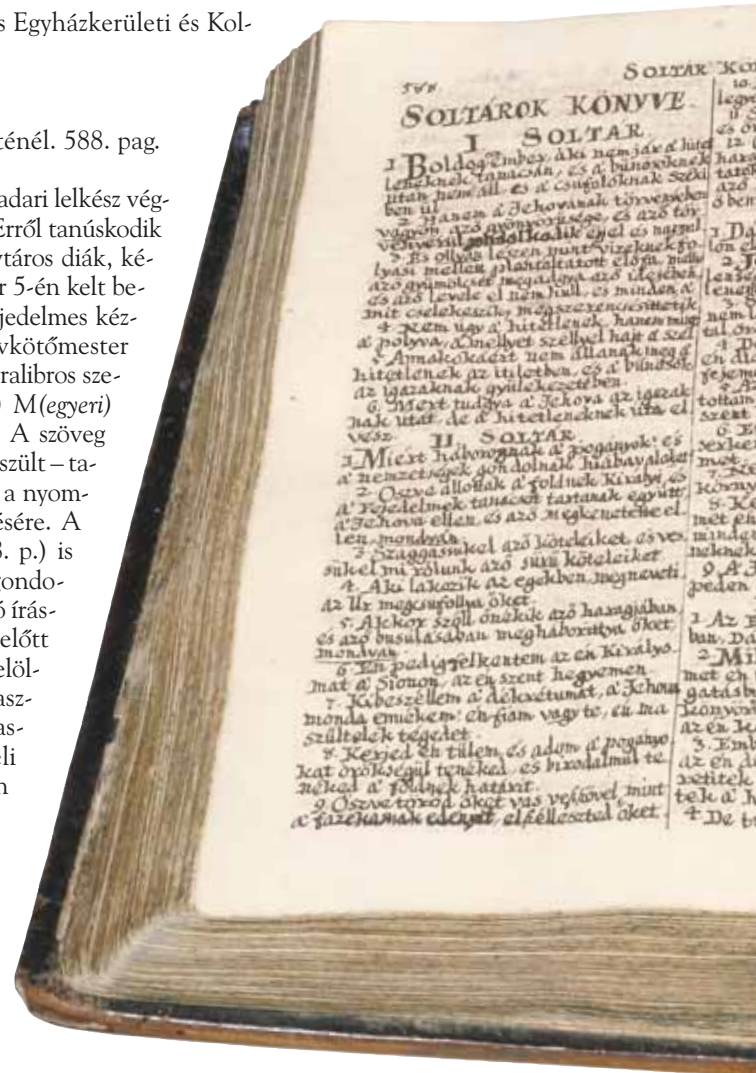 s Egyházkerületi és Kol-
ténél. 588. pag.
adari lelkész vég-
Erről tanúskodik
vtáros diák, ké-
r 5-én kelt be-
jedelmes kéz-
vkötőmester
ralibros sze-
M(egyeri)
A szöveg
szült – ta-
a nyom-
ésére. A
. p.) is
gondo-
ó írás-
előtt
elöl-
asz-
as-
eli
SOLTÁR
SOLTÁROK KÖNYVE.
I SOLTAR.
1 Boldog ember, aki nem jár a' hitet
leneknek tanacsán, es a' bűnösöknek
utan nem áll, es a' csufolóknak széki
ben ül.
2. Hanem a' Jehovanak törvenyeben
vagyon azö gyönyörüsége, es azö tör
venyerül gondolkodik éjjel es nappal.
3. Es ollyan leszen mint vizeknek fo
lyasi mellett plantaltatott előfa, melly
azö gyümölcset megadgya azö idejeben,
es azö levele el nem hull, es minden a'
mit cselekeszik, megszerencsésittetik.
4. Nem úgy a' hitetlenek, hanem mint
a' polyva, a' mellyet széllyel hajt a' szél
5. Annakokáért nem állanak meg a'
hitetlenek az itiletben, es a' bűnösök
az igazaknak gyülekezetében.
6. Mert tudgya a' Jehova az igazak
nak útát, de a' hitetleneknek úta el
vész.
II SOLTAR.
1. Miert háborognak a' poganyok: és
a' nemzetségek gondolnak hiabavalokat
2. Öszve állottak a' földnek Királyi, es
a' Fejedelmek tanácsot tartanak együtt,
a' Jehova ellen, és azö Megkenettetie el
len, mondván.
3. Szaggassukel azö köteleiket, és ves
sükel mi rólunk azö sürü köteleiket
4. Aki lakozik az egekben, megneveti
az Ur megcsufollya őket.
5. Akkor szóll önékik azö haragjában,
es azö busulasában meghaborittya őket
mondván.
6. En pedig felkentem az én Királyo
mat a' Sionon, az én szent hegyemen
7. Kibeszéllem a' dekrétumat, a' Jehova
monda ennekem: én fiam vagy te, én ma
szültelek tégedet.
8. Kérjed én tülem, és adom a' poganyo
kat örökségül tenéked, és birodalmul te
néked a' földnek határit.
9. Öszve töröd őket vas veszszövel, mint
a' fazekasnak edenyit, elszélleszted őket.